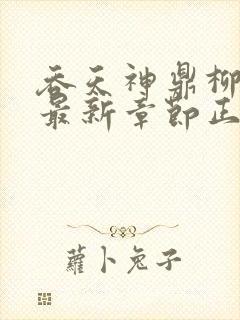 吞天神鼎柳
最新章节正
蘿卜兔子